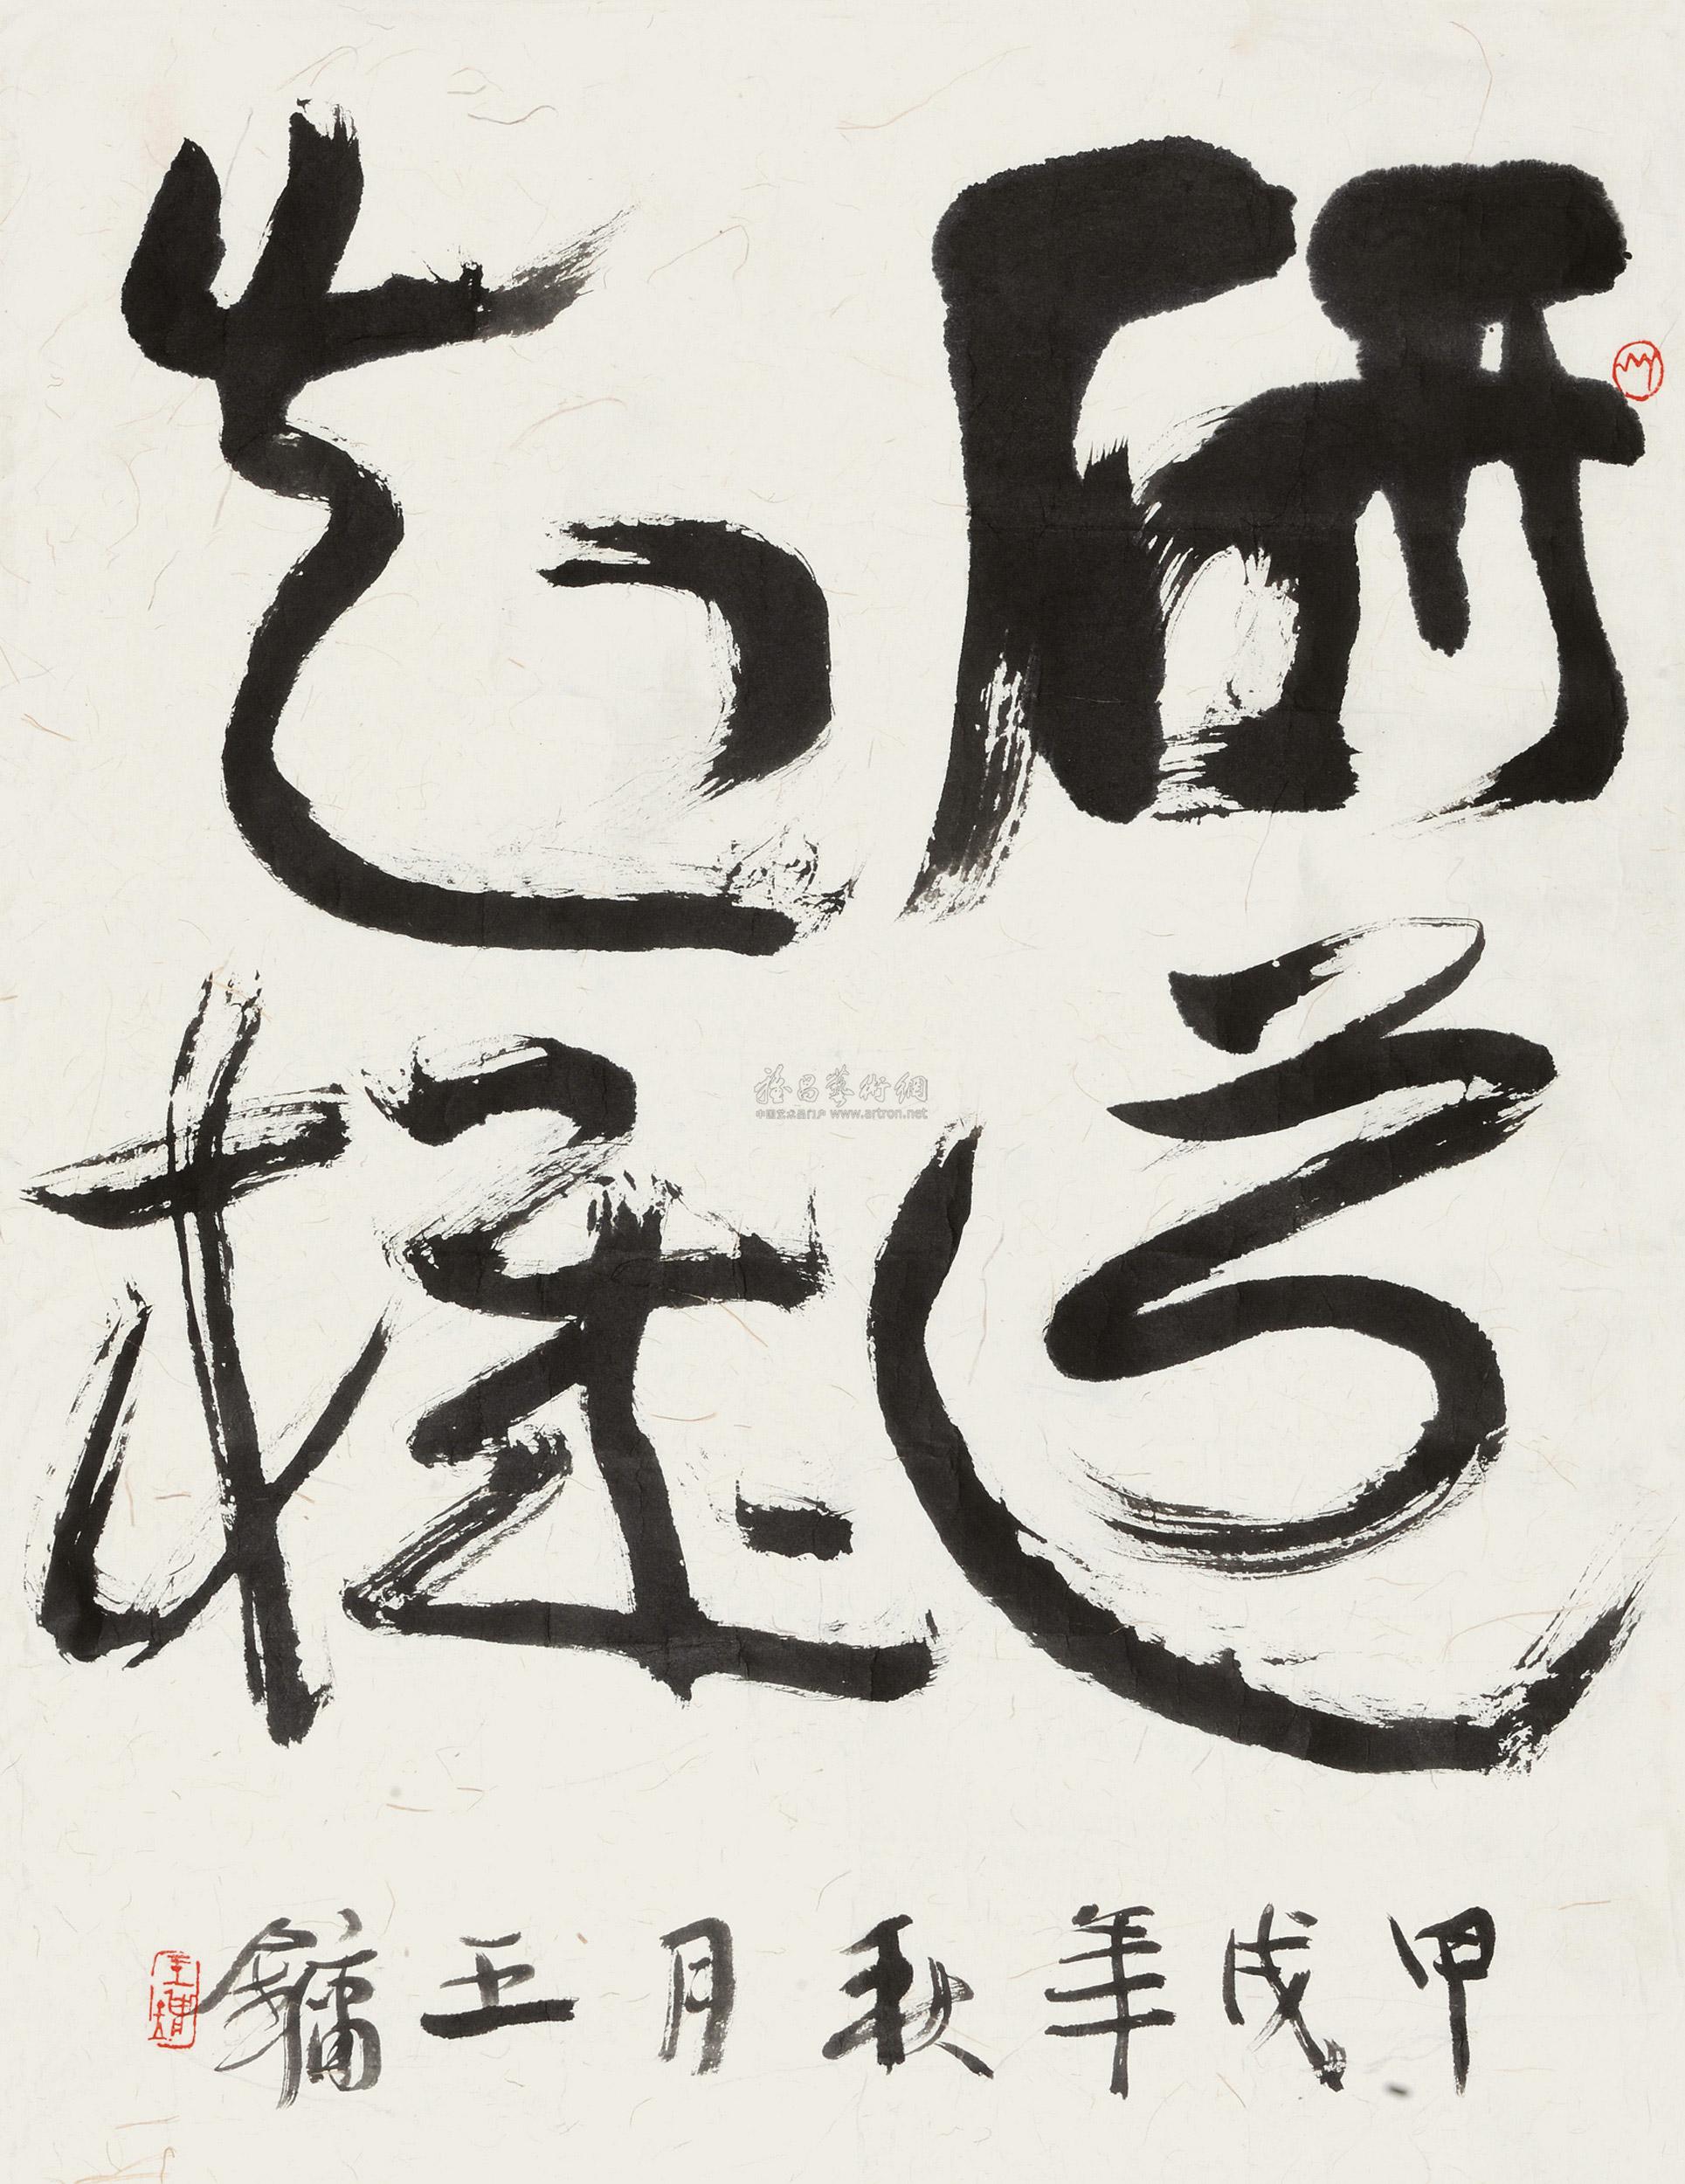 研道
知
甲戌年秋月王鏞
雅昌藝術網
中国艺术品门户 www.artron.net